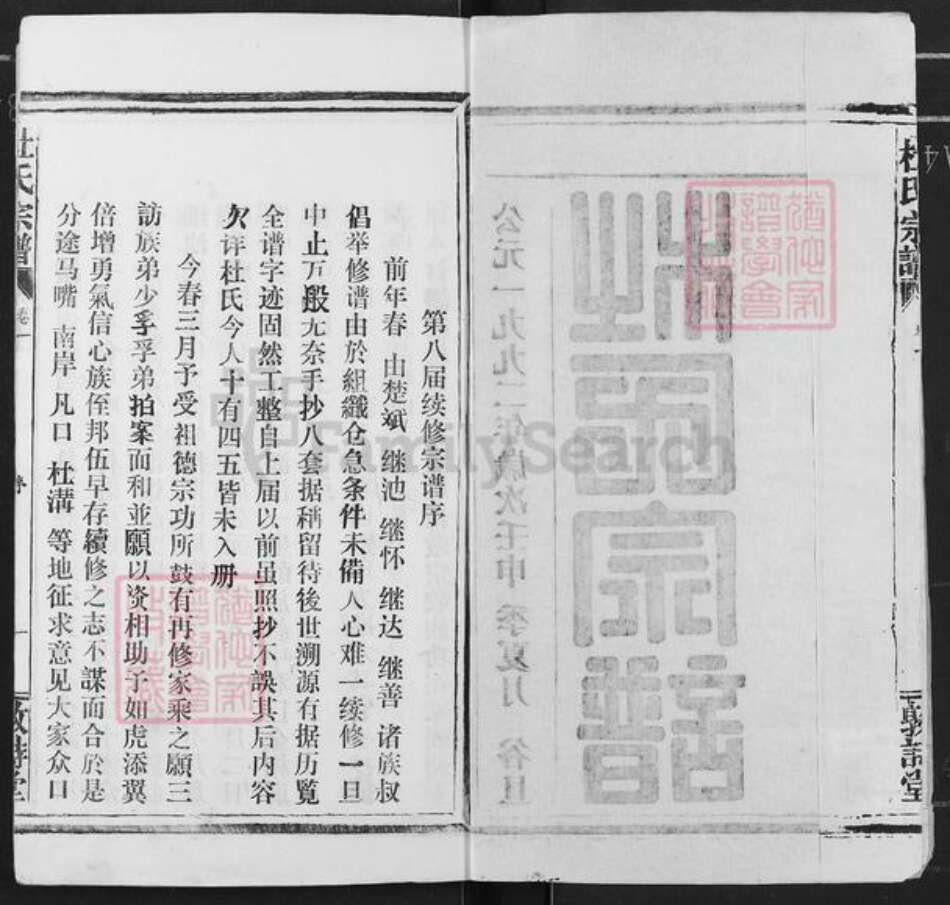 杜氏宗譜
卷一
敦詩堂
杜氏宗譜
公元一九九二年歲次壬申季夏月 谷旦
第八届续修宗谱序
前年春 由楚斌 继池 继怀 继达 继善 诸族叔
倡举修谱由於組織仓急条件未備人心难一续修一旦
中止万般无奈手抄八套据稱留待後世溯源有据历覧
全谱字迹固然工整自上届以前虽照抄不誤其后内容
欠详杜氏今人十有四五皆未入册
今春三月予受祖德宗功所鼓有再修家乘之願三
訪族弟少孚孚弟拍案而和並願以资相助予如虎添翼
倍增勇氣信心族侄邦伍早存續修之志不謀而合於是
分途马嘴 南岸 凡口 杜溝 等地征求意见大家众口
杜氏宗譜
卷一
序
一
敦詩堂
FamilySearch